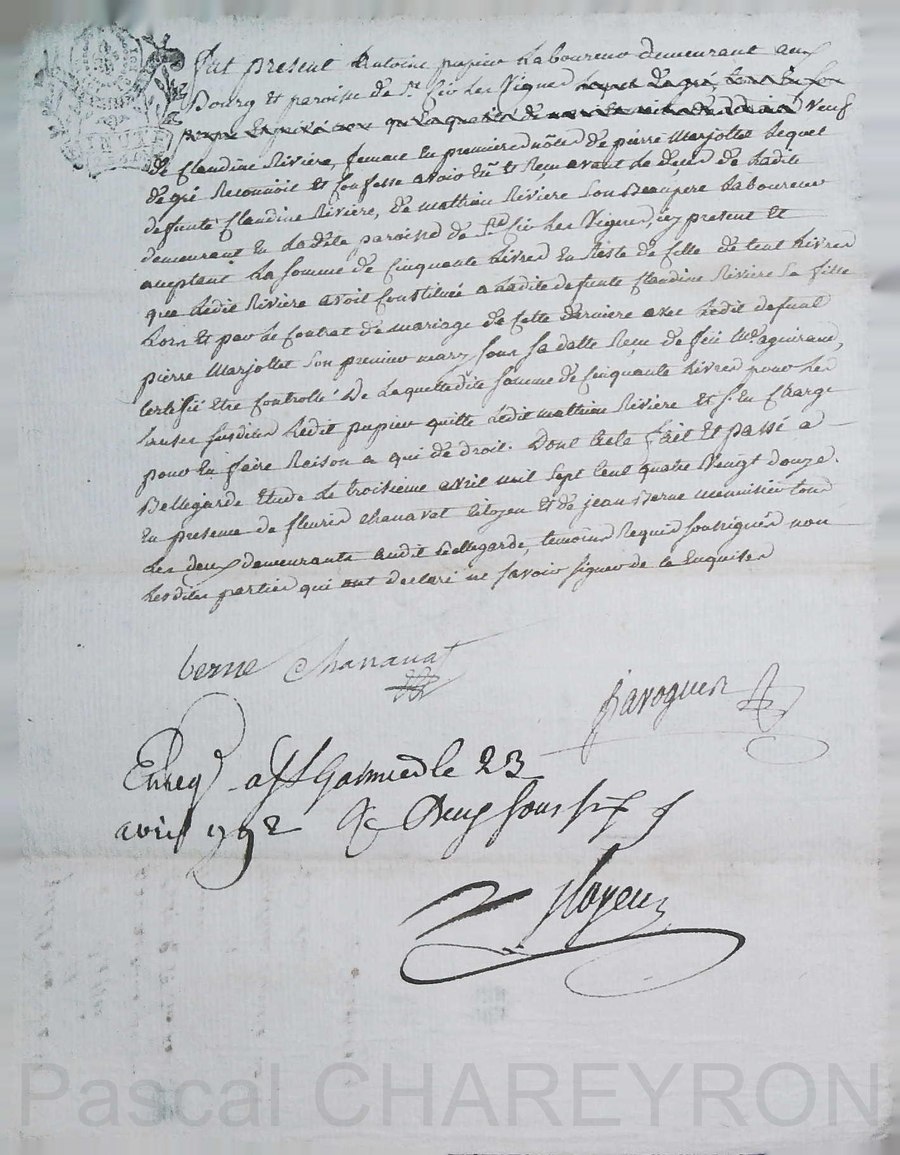 fut present Antoine pupier Laboureur demeurant aux
Bourg et paroisse de St. Cir les Vignes
veuf
de Claudine Riviere, femme en premieres nôces de pierre Marjollet lequel
de gré Reconnoit et Confesse avoir eû et Reçu avant le deces de ladite
defunte Claudine Riviere, de mathieu Riviere son Beaupere Laboureur
demeurant en ladite paroisse de St. Cir les Vignes, icy present et
acceptant la somme de Cinquante livres en Reste de Celle de Cent livres
que ledit Riviere avoit Constitué a ladite defunte Claudine Riviere sa fille
lors et par le Contrat de mariage de Cette derniere avec ledit defunt
pierre Marjollet son premier mary sous sa datte Reçu de feu Me. aguiraud,
Certifié etre Controllé. De laquelle dite somme de Cinquante livres pour les
Causes susdites ledit pupier quitte ledit mathieu Riviere et s'en Charge
pour en faire Raison a qui de droit. Dont acte fait et passé a
Bellegarde Etude le troisieme avril mil sept Cent quatre Vingt douze.
En presence de fleurie Chanavat Citoyen et de jean Berne menuisier tous
les deux demeurants audit Bellegarde, temoins Requis soussignés non
lesdites parties qui ont declaré ne savoir signer de ce Enquises
berne Chanauat
Enreg. a St Galmier le 23
avril 1792 Rc Deux sous six
Pascal CHAREYRON